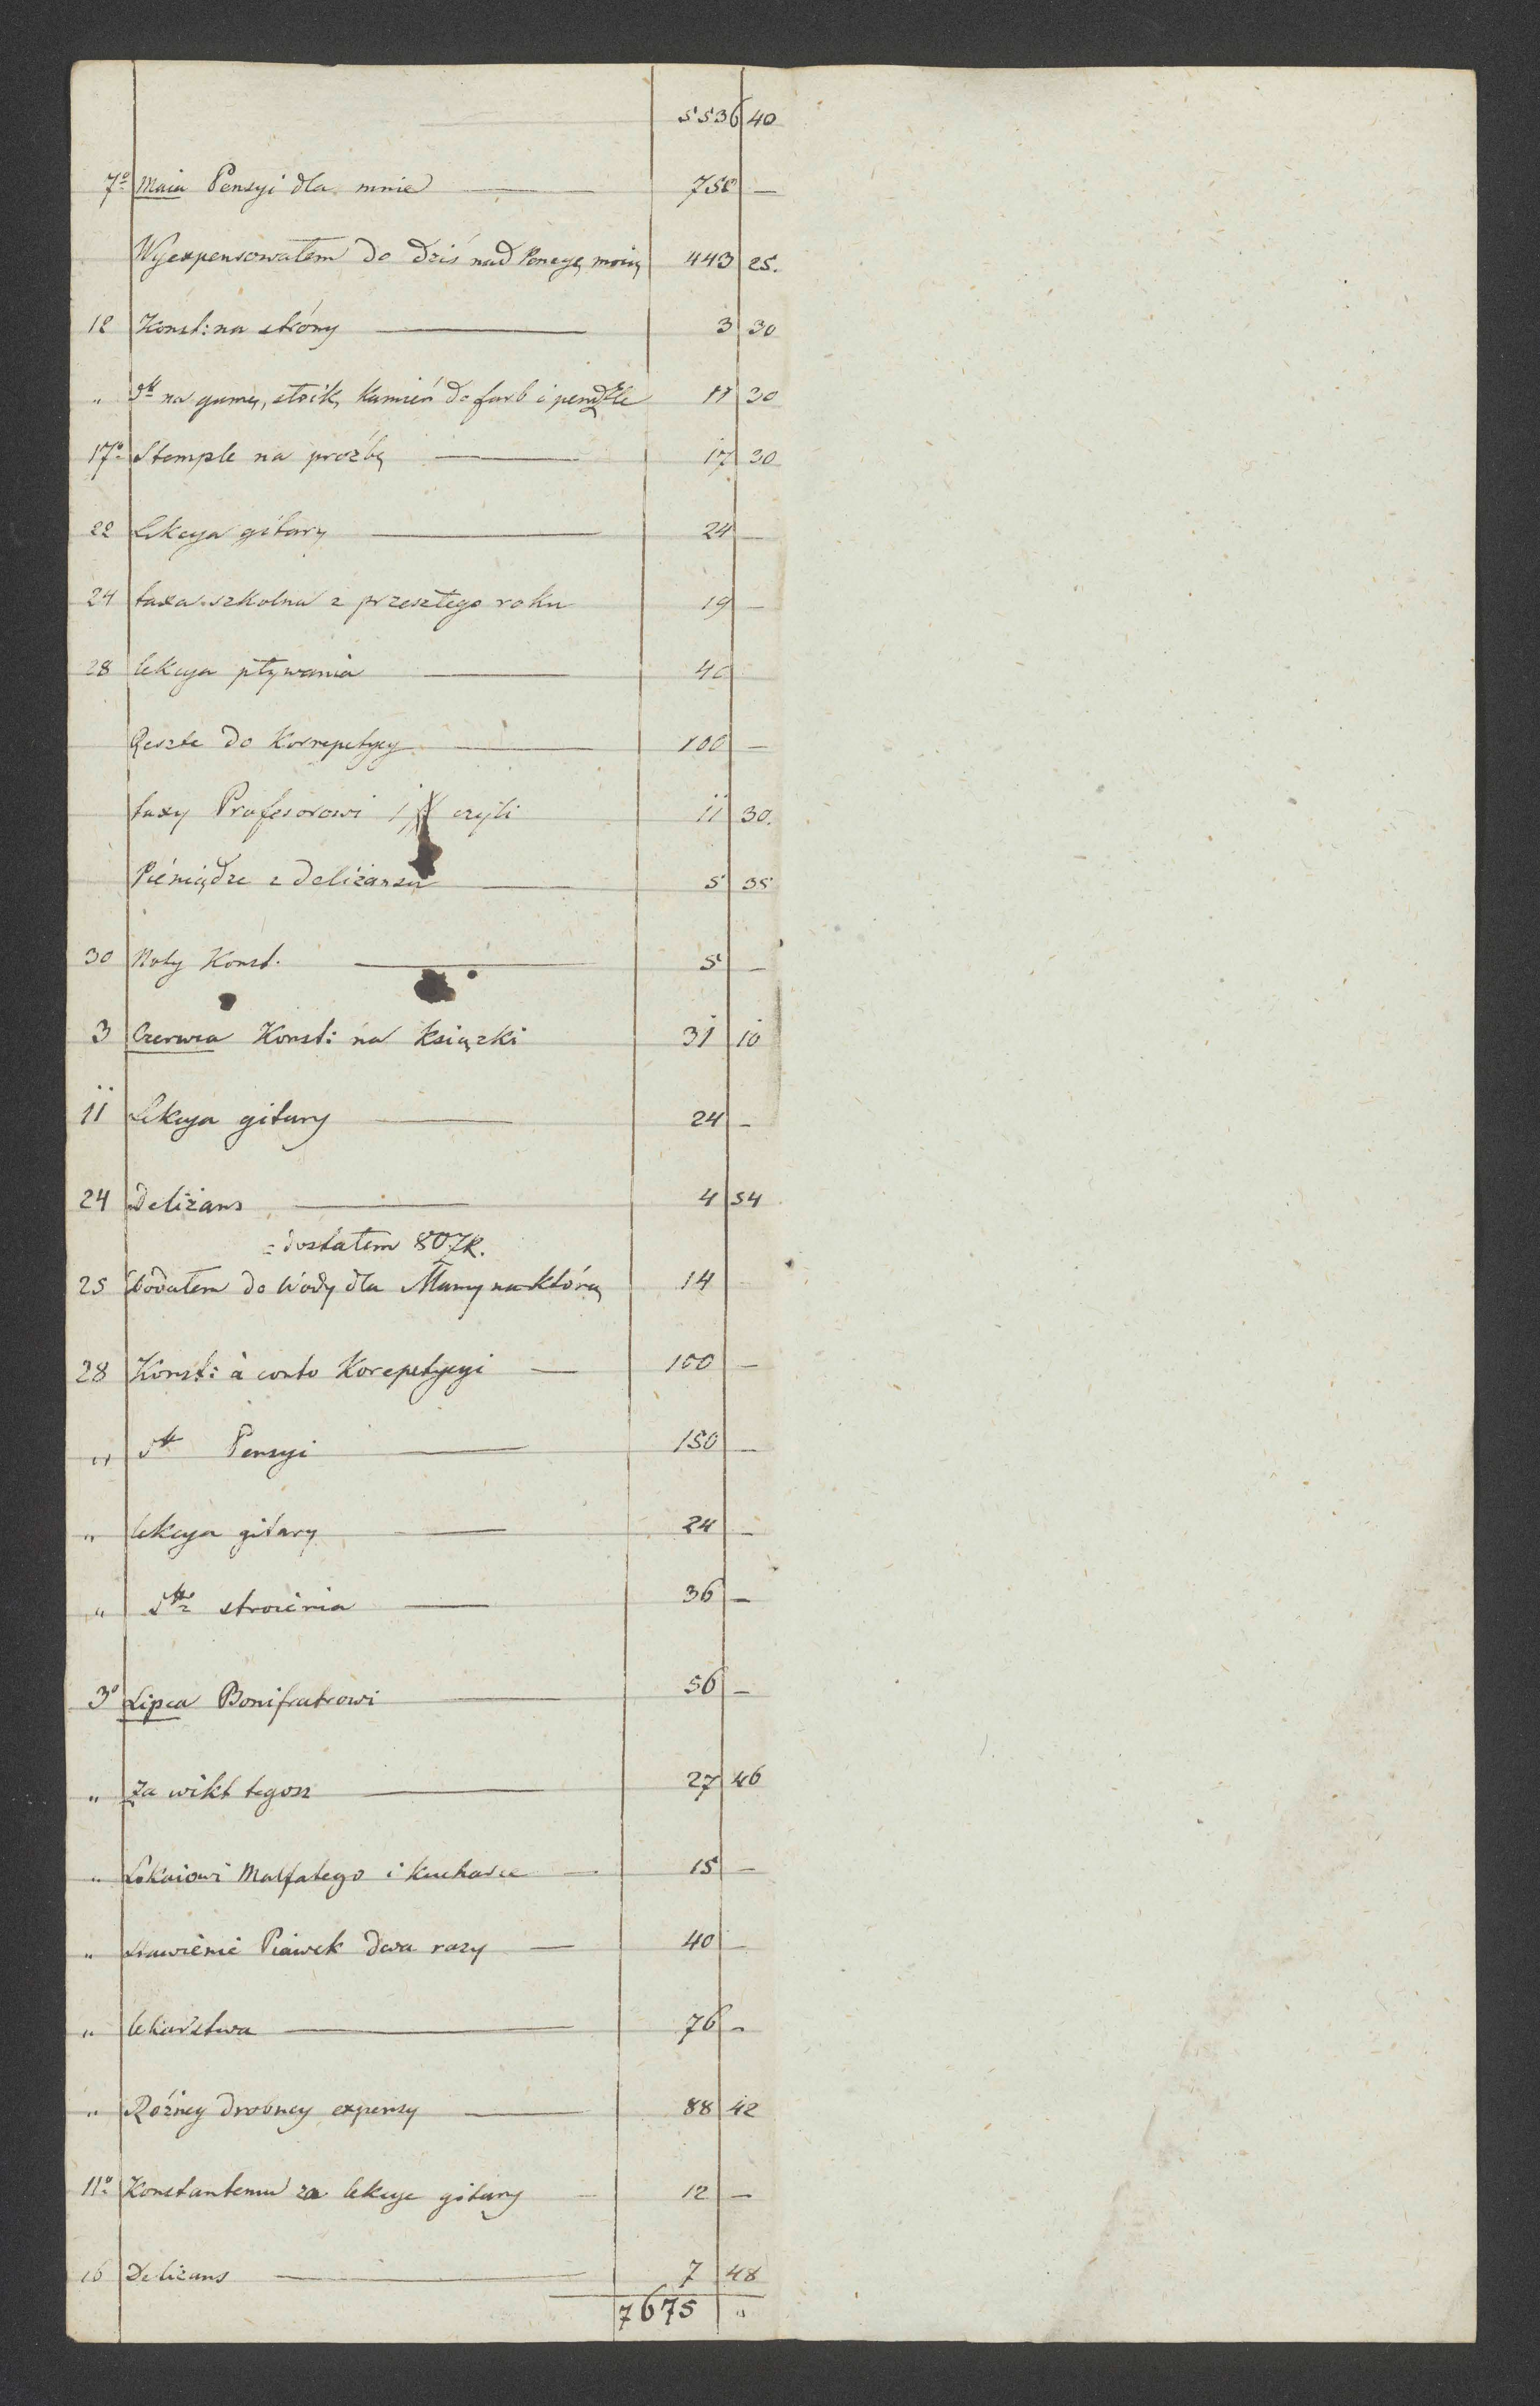 5536 40
7º Maia Pensyi dla mnie 750 —
Wyexpensowałem do dziś nad Pensyę moią 443 25.
12 Konst: na stróny 3 30
" dtt na gumę, stoik, kamień do farb i pendzle 11 30
17º Stemple na prozbę 17 30
22 Lekcya gitary 24 —
24 taxa szkolna z przeszłego roku 19 —
28 lekcya pływania 40
Reszte do Korrepetycy 100 —
taxy Profesorowi czyli 11 30.
Pieniądze z Deliżansu 5 35
30 Noty Konst. 5 —
3 Czerwca Konst: na książki 31 10
11 Lekcya gitary 24 —
24 Deliżans 4 54
= dostałem 80 ZR.
25 dodałem do Wody dla Mamy na którą 14 —
28 Konst: à conto Korepetycyi 100 —
" dtt Pensyi 150 —
" lekcya gitary 24 —
" dtto stroienia 36 —
3º Lipca Bonifratrowi 56 —
" Za wikt tegoż 27 46
" Lokaiowi Malfatego i kucharce 15 —
" Stawienie Piawek dwa razy 40 —
" lekarstwa 76 —
" Różney drobney expensy 88 42
11º Konstantemu za lekcye gitary 12 —
16 Deliżans 7 48
7675 "